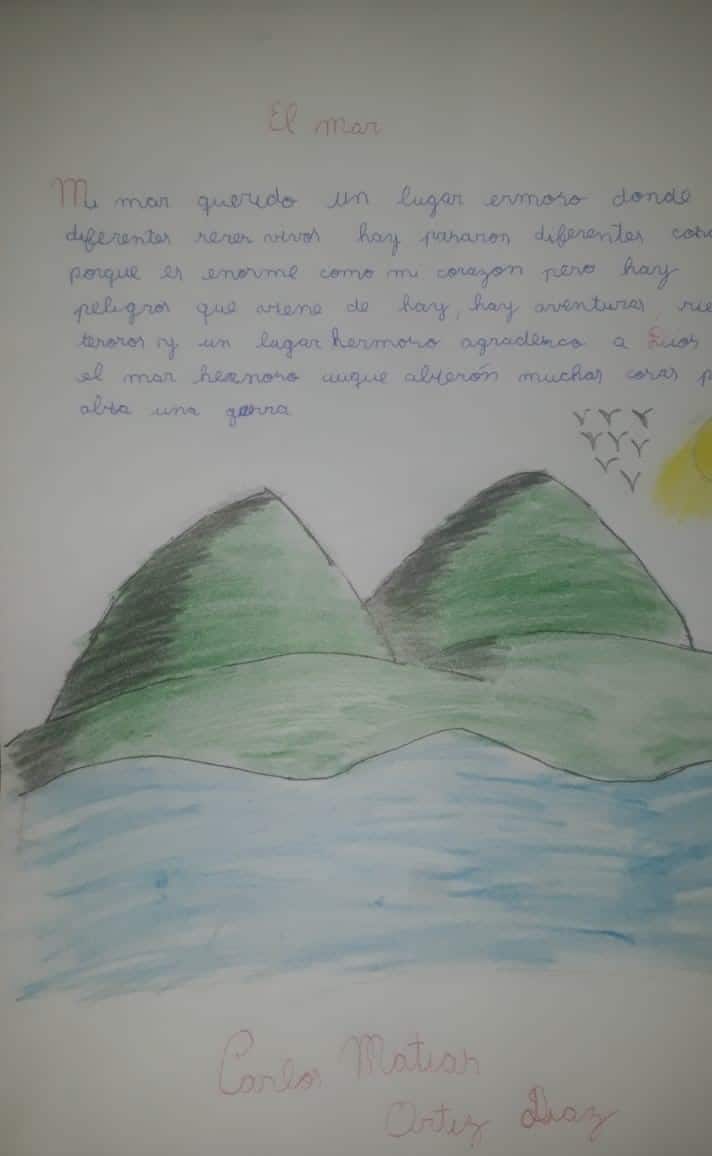 El mar
Mi mar querido un lugar ermoso donde
diferentes seres vivos hay pasaron diferentes cosa
porque es enorme como mi corazon pero hay
peligros que viene de hay, hay aventuras, rie
tesoros y un lugar hermoso agradesco a Dios
el mar hermoso auque abierón muchas cosas p
abia una gerra
Carlos Matias
Ortiz Diaz